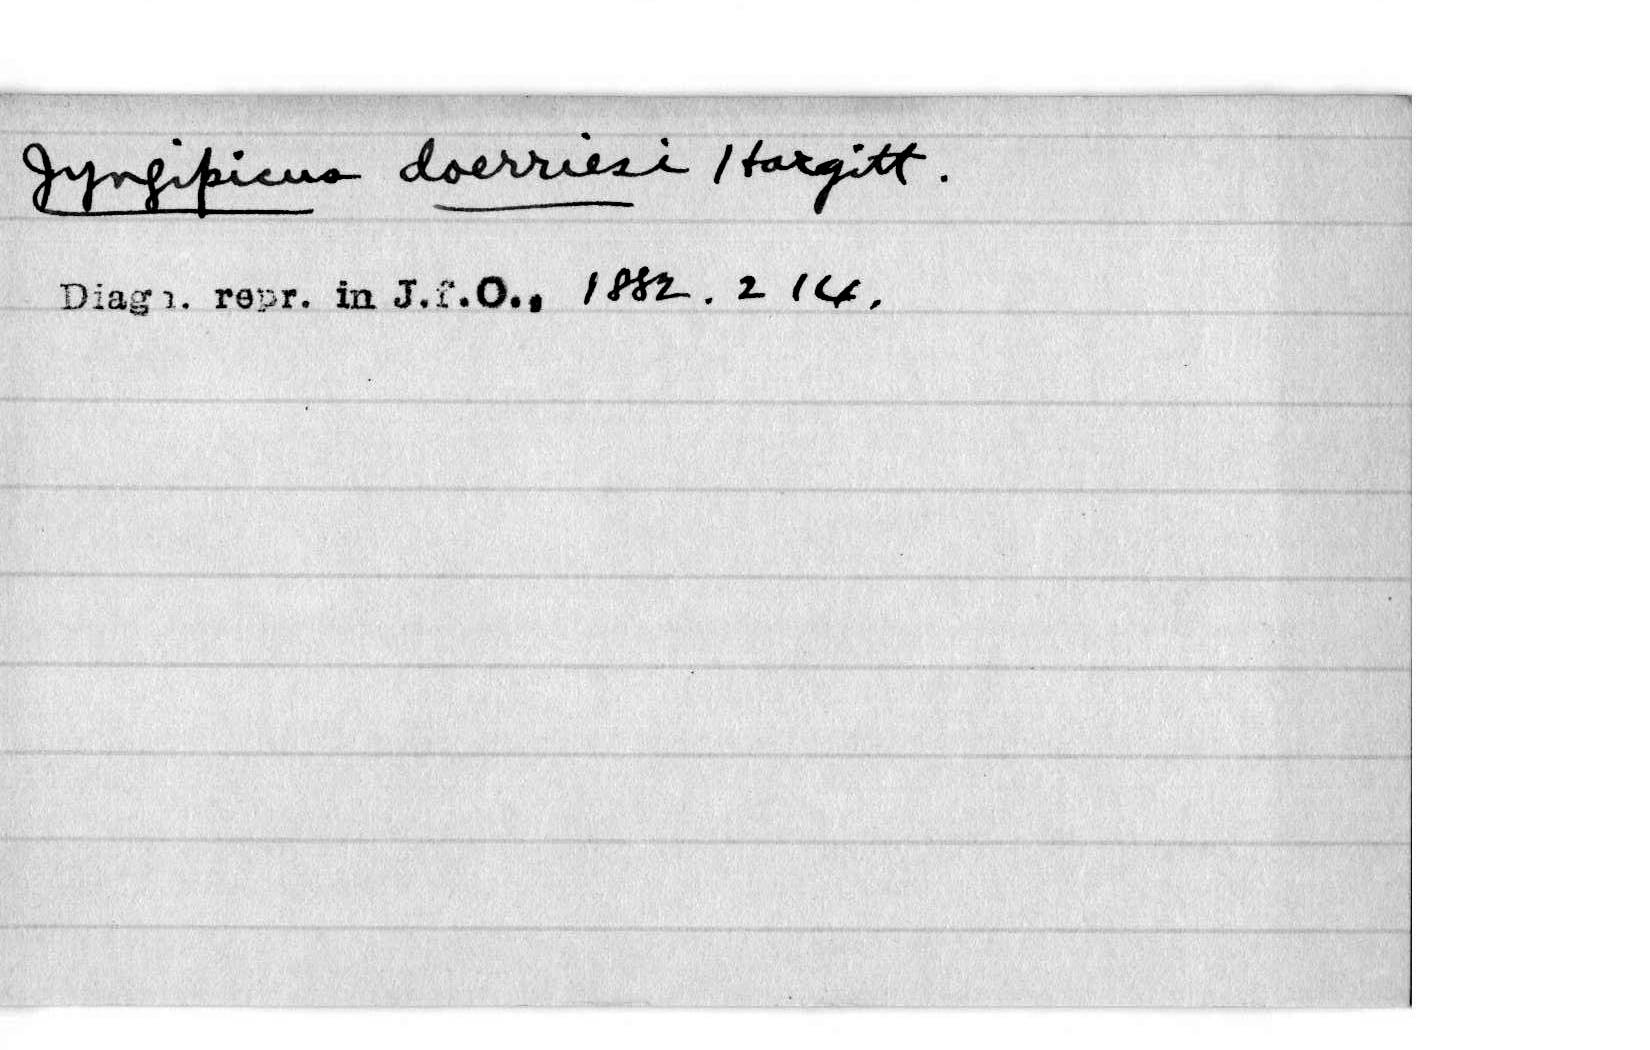 Jyngipicus doerriesi Hargitt.
Diagn. repr. in J.f.O., 1882. 214.